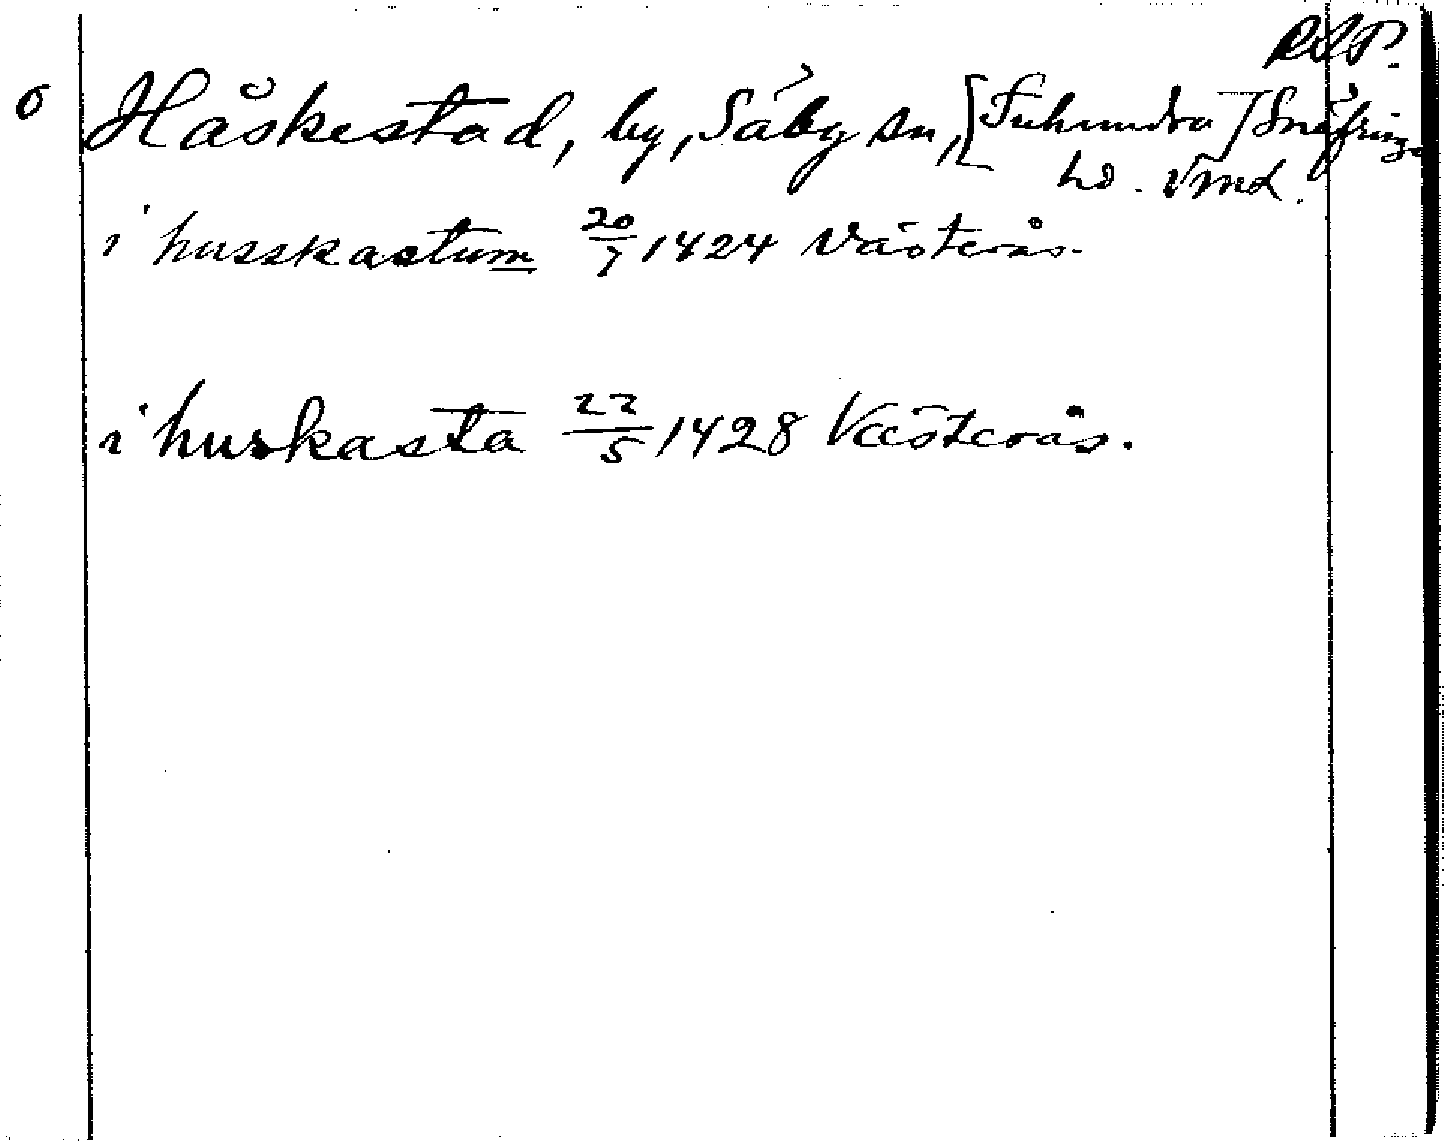 RAP.
o Håskestad, by, Säby sn, [Tuhundra] Snäfringe
hd. Vmd.
i husskastum 20/7 1424 Västerås.
i huskasta 22/5 1428 Västerås.